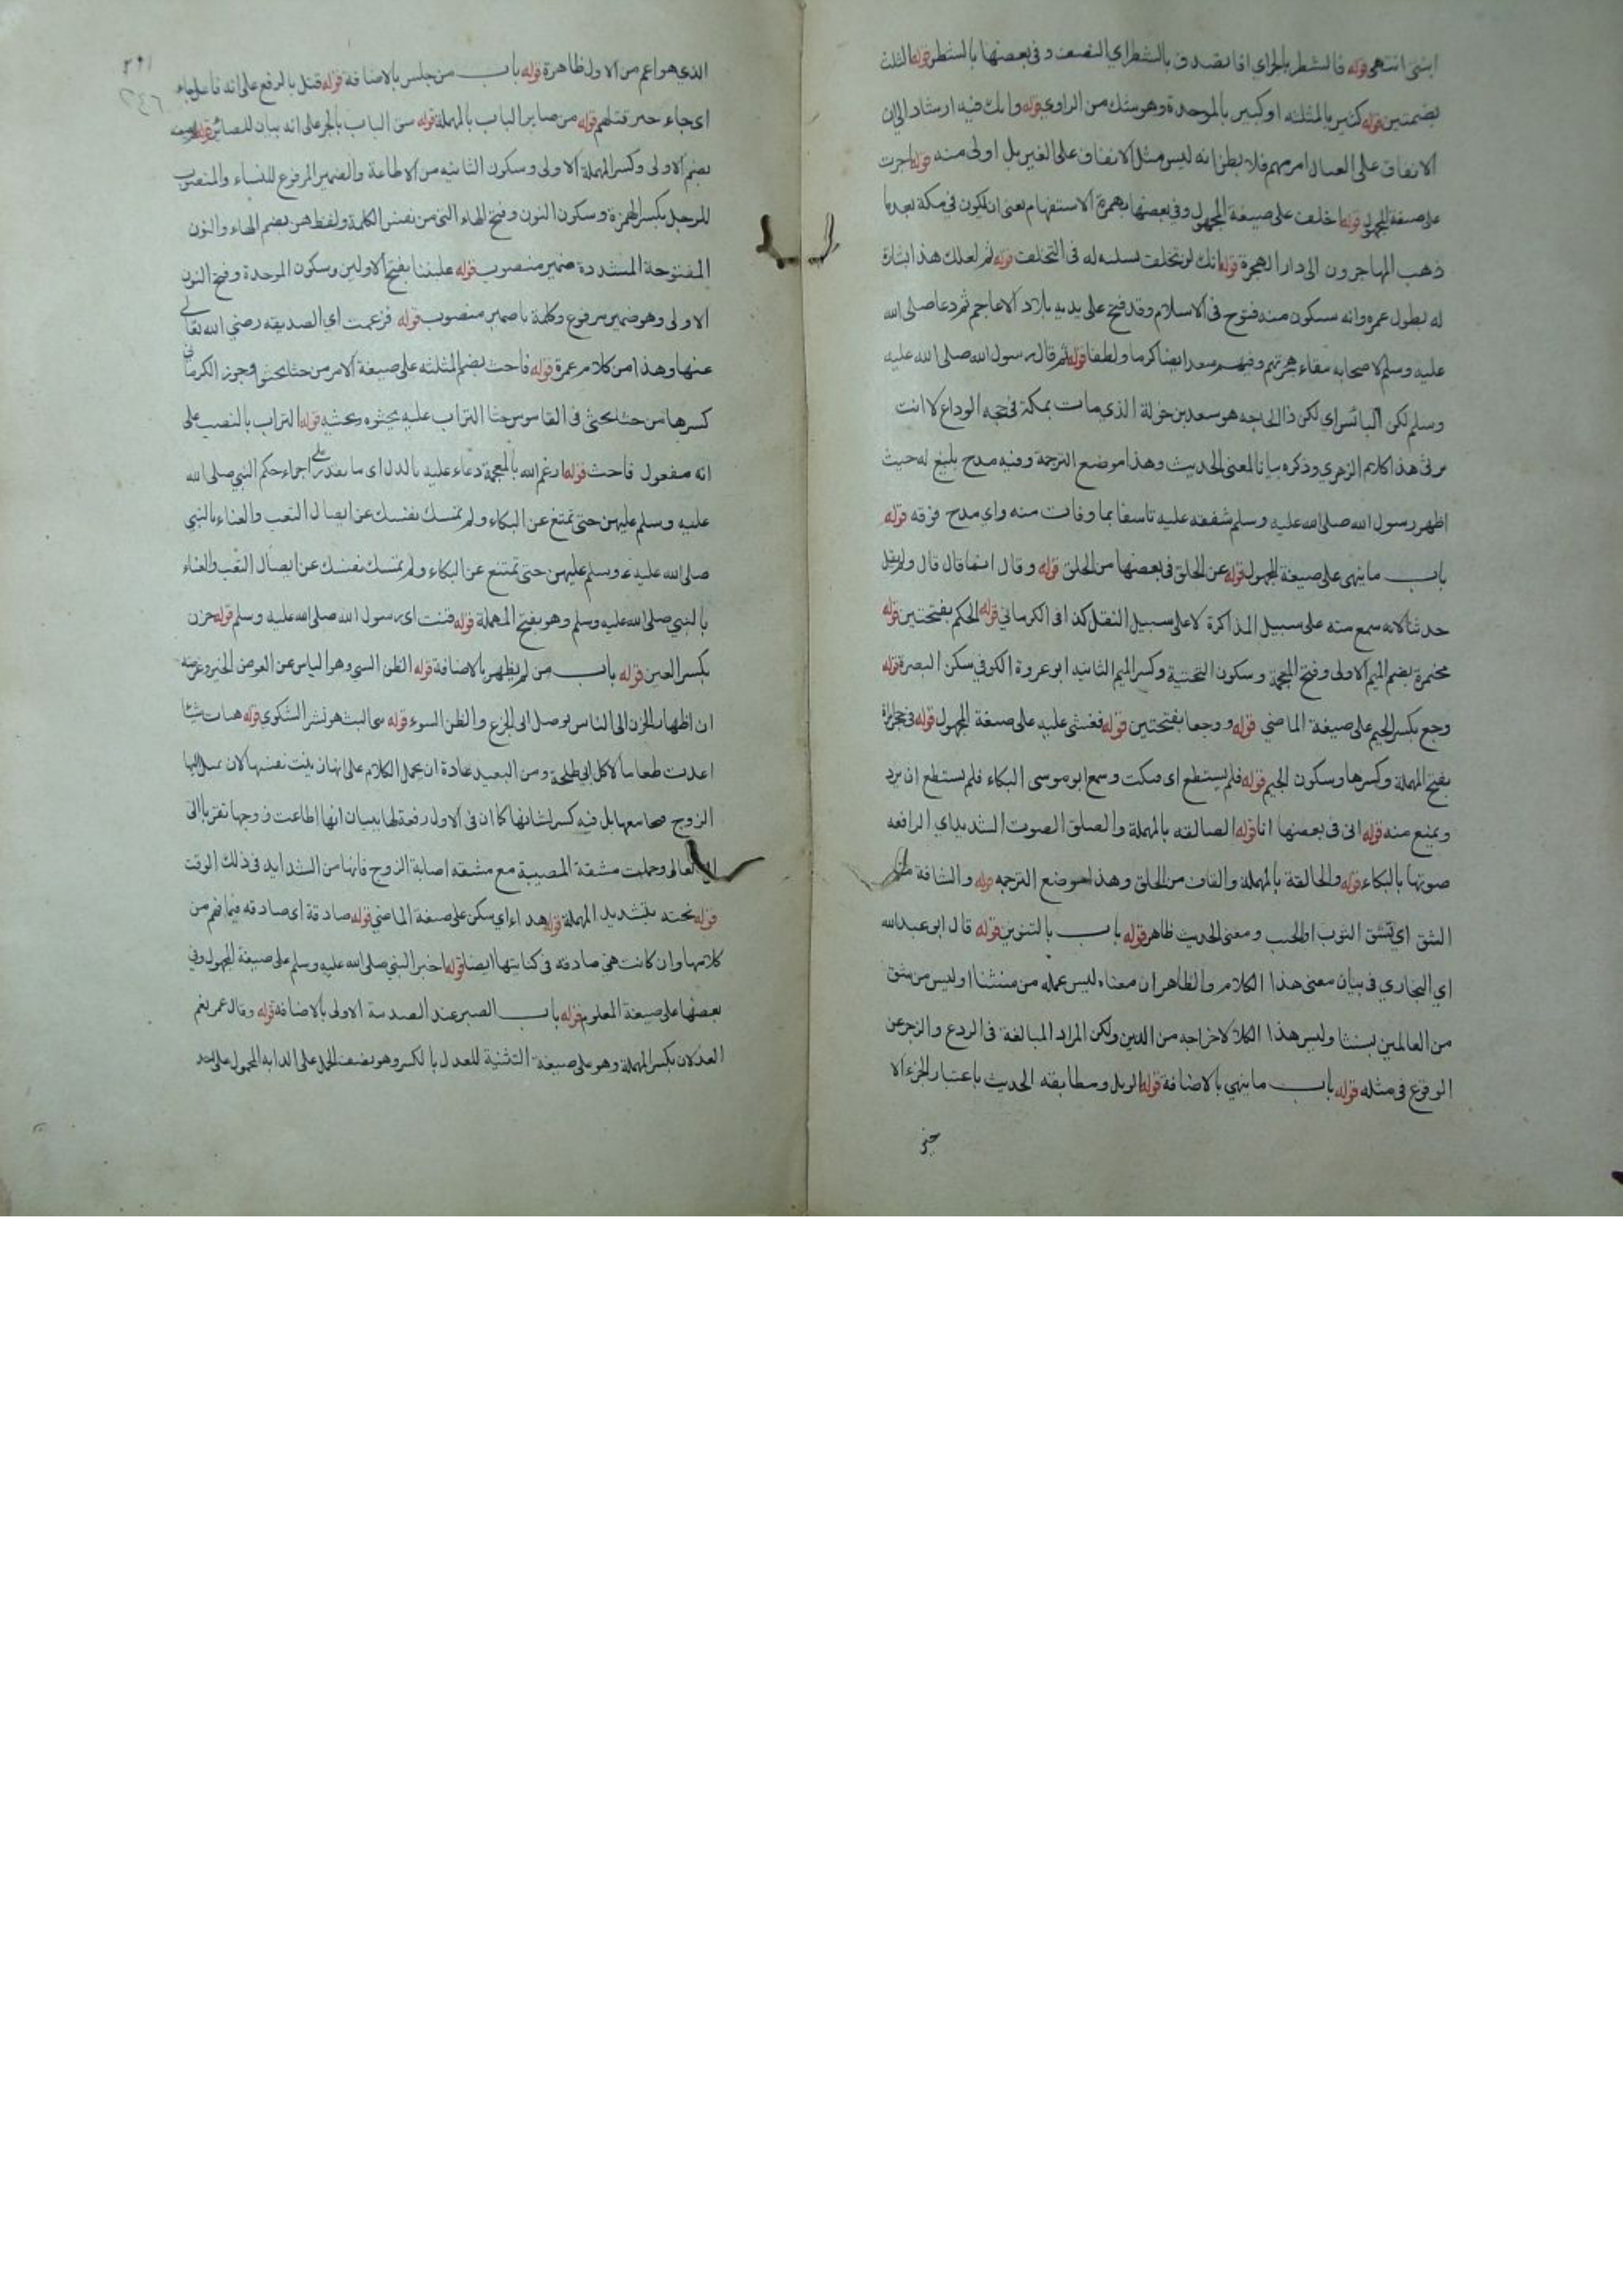 ابنتي انتهى قوله فالشطر بالجر اي افاتصدق بالشطر اي النصف وفي بعضها بالشطر قوله الثلث
بضمتين قوله كثير بالمثلثه او كبير بالموحدة وهو شك من الراوي قوله وانك فيه ارشاد الى ان
الانفاق على العيال امر مهم فلا يظن انه ليس مثل الانفاق على الغير بل اولى منه قوله اجرت
على صيغة المجهول قوله اخلف على صيغة المجهول وفي بعضها بهمزة الاستفهام يعني ان اكون في مكة بعد ما
ذهب المهاجرون الى دار الهجرة قوله انك لن تخلف تسلية له في التخلف قوله ثم لعلك هذا اشارة
له بطول عمره وانه سيكون منه فتوح في الاسلام وقد فتح على يديه بلاد الاعاجم ثم دعا صلى الله
عليه وسلم لاصحابه ببقاء هجرتهم وفيهم سعد ايضا كرما ولطفا قوله ثم قال رسول الله صلى الله عليه
وسلم لكن البائس اي لكن ذا الحاجه هو سعد بن خولة الذي مات بمكة في حجه الوداع لا انت
يرثى هذا كلام الزهري وذكره بيانا لمعنى الحديث وهذا موضع الترجمة وفيه مدح بليغ له حيث
اظهر رسول الله صلى الله عليه وسلم شفقه عليه تاسفا بما وفات منه واي مدح فوقه قوله
باب ما ينهى على صيغة المجهول قوله عن الحلق في بعضها من الحلق قوله وقال انما قال قال ولم يقل
حدثنا لانه سمع منه على سبيل المذاكرة لا على سبيل النقل كذا في الكرماني قوله الحكم بفتحتين قوله
مخيمرة بضم الميم الاولى وفتح المعجمة وسكون التحتية وكسر الميم الثانيه ابو عروة الكوفي سكن البصرة قوله
وجع بكسر الجيم على صيغة الماضي قوله ووجعا بفتحتين قوله فغشى عليه على صيغة المجهول قوله في حجر امراة
بفتح المهملة وكسرها وسكون الجيم قوله فلم يستطع اي فسكت وسمع ابو موسى البكاء فلم يستطع ان يرد
ويمنع منه قوله انى في بعضها انا قوله الصالقه بالمهملة والصلق الصوت الشديد اي الرافعه
صوتها بالبكاء قوله والحالقة بالمهملة والقاف من الحلق وهذا موضع الترجمه قوله والشاقة من
الشق اي تشق الثوب او الجيب ومعنى الحديث ظاهر قوله باب بالتنوين قوله قال ابو عبد الله
اي البخاري في بيان معنى هذا الكلام والظاهر ان معناه ليس عمله من سنتنا او ليس من يشق
من العالمين بسنتنا وليس هذا الكلام لاخراجه من الدين ولكن المراد المبالغة في الردع والزجر عن
الوقوع في مثله قوله باب ما ينهي بالاضافة قوله الويل ومطابقه الحديث باعتبار الجزء الا
خير
الذي هو اعم من الاول ظاهرة قوله باب من جلس بالاضافة قوله قتل بالرفع على انه فاعل جاء
اي جاء خبر قتلهم قوله من صاير الباب بالمهملة قوله شق الباب بالجر على انه بيان للصائر
بضم الاولى وكسر المهملة الاولى وسكون الثانيه من الاطاعة والضمير المرفوع للنساء والمنصوب
للرجل بكسر الهمزة وسكون النون وفتح الهاء التي من نفس الكلمة ولفظ هن بضم الهاء والنون
المفتوحة المشددة ضمير منصوب قوله غلبننا بفتح الاولين وسكون الموحدة وفتح النون
الاولى وهو ضمير مرفوع وكلمة نا ضمير منصوب قوله فزعمت اي الصديقه رضي الله تعالى
عنها وهذا من كلام عمرة قوله فاحث بضم المثلثه على صيغة الامر من حثا يحثو ويجوز الكرماني
كسرها من حثا يحثى في القاموس حثا التراب عليه يحثوه ويحثيه قوله التراب بالنصب على
انه مفعول فاحث قوله ارغم الله بالمعجمة دعاء عليه بالذل اي ما يقدر على اجراء حكم النبي صلى الله
عليه وسلم عليهن حتى تمتنع عن البكاء ولم تمسك نفسك عن ايصال التعب والعناء بالنبي
صلى الله عليه وسلم عليهن حتى تمتنع عن البكاء ولم تمسك نفسك عن ايصال التعب والعناء
بالنبي صلى الله عليه وسلم وهو بفتح المهملة قوله قنت اي رسول الله صلى الله عليه وسلم قوله حزن
بكسر العين قوله باب من لم يظهر بالاضافة قوله الظن السي وهو الياس عن العوض الخير وغرضه
ان اظهار الحزن الى الناس يوصل الى الجزع والظن السوء قوله بثي البث هو نشر الشكوي قوله هيات شيئا
اعدت طعاما لاكل ابي طلحة ومن البعيد عادة ان يحمل الكلام على انها زينت نفسها لان يميل اليها
الزوج معها بل فيه كسر لشانها كما ان في الاول رفعة لها ببيان انها اطاعت زوجها تقربا الى
الله تعالى وحملت مشقة المصيبة مع مشقه اصابة الزوج فانها من الشدايد في ذلك الوقت
قوله نحته بتشديد المهملة قوله هدا اي سكن على صيغة الماضي قوله صادقة اي صادقه فيما فهم من
كلامها وان كانت هي صادقه في كنايتها ايضا قوله اخبر النبي صلى الله عليه وسلم على صيغة المجهول وفي
بعضها على صيغة المعلوم قوله باب الصبر عند الصدمة الاولى بالاضافة قوله وقال عمر نعم
العدلان بكسر المهملة وهو على صيغة التثنية للعدل بالكسر وهو نصف الحمل على الدابه المحمول على